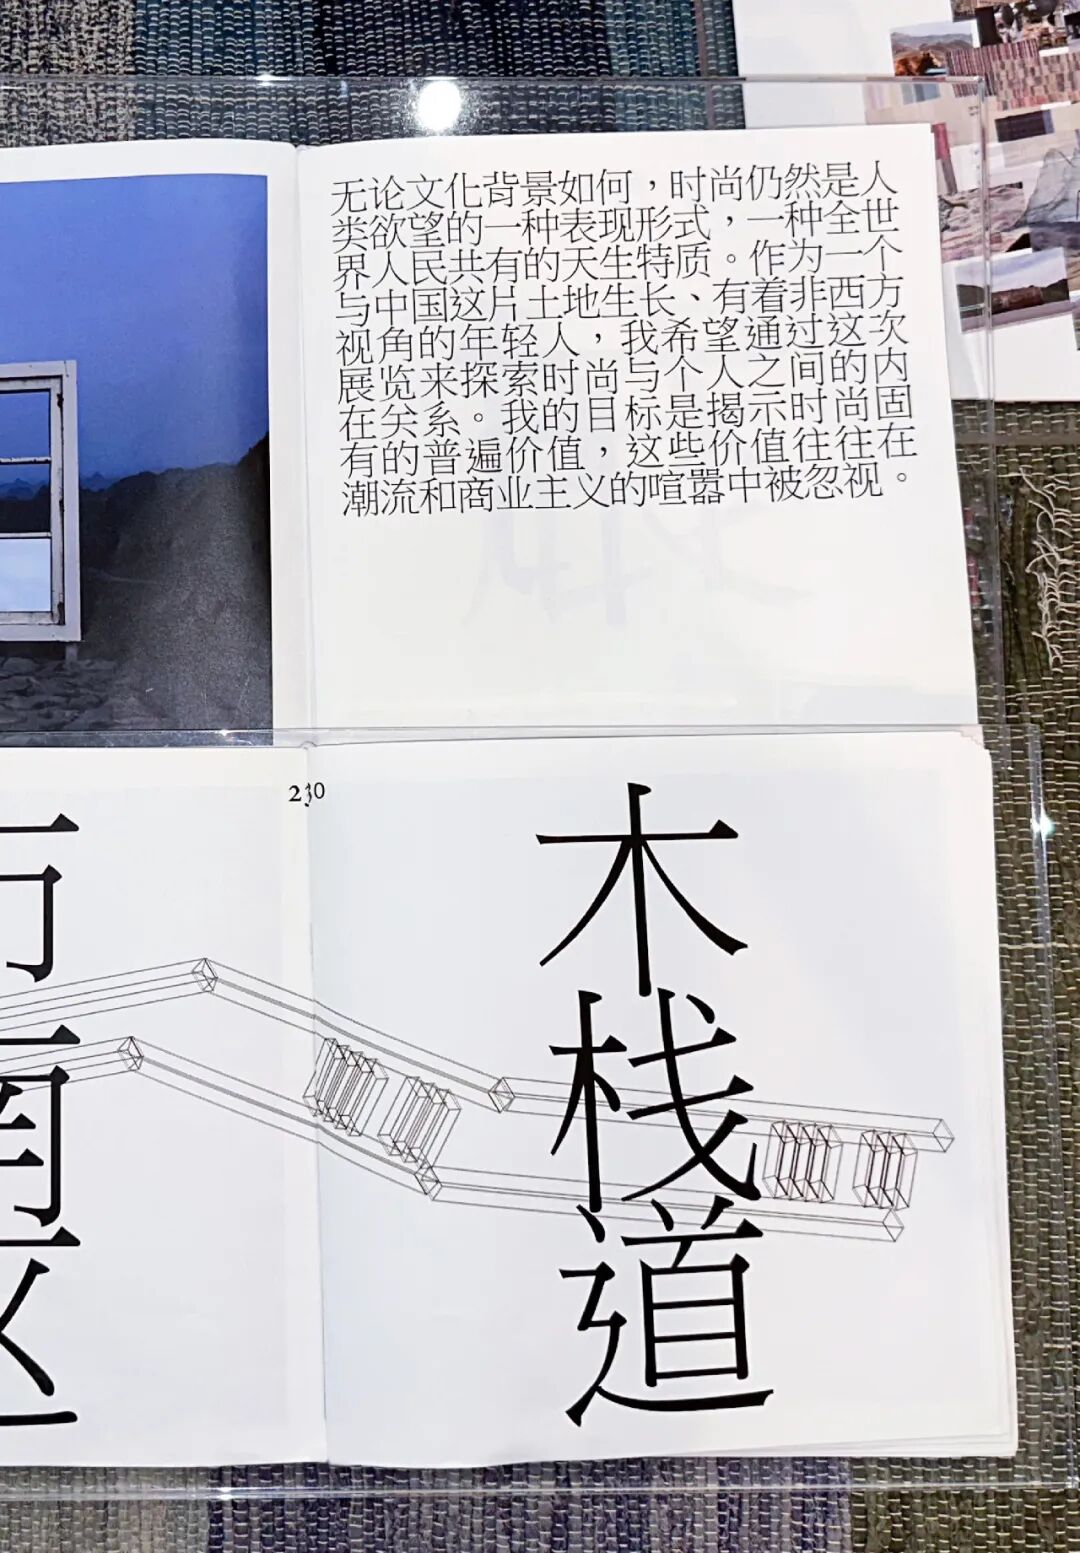 无论文化背景如何，时尚仍然是人
类欲望的一种表现形式，一种全世
界人民共有的天生特质。作为一个
与中国这片土地生长、有着非西方
视角的年轻人，我希望通过这次
展览来探索时尚与个人之间的内
在关系。我的目标是揭示时尚固
有的普遍价值，这些价值往往在
潮流和商业主义的喧嚣中被忽视。
木栈道